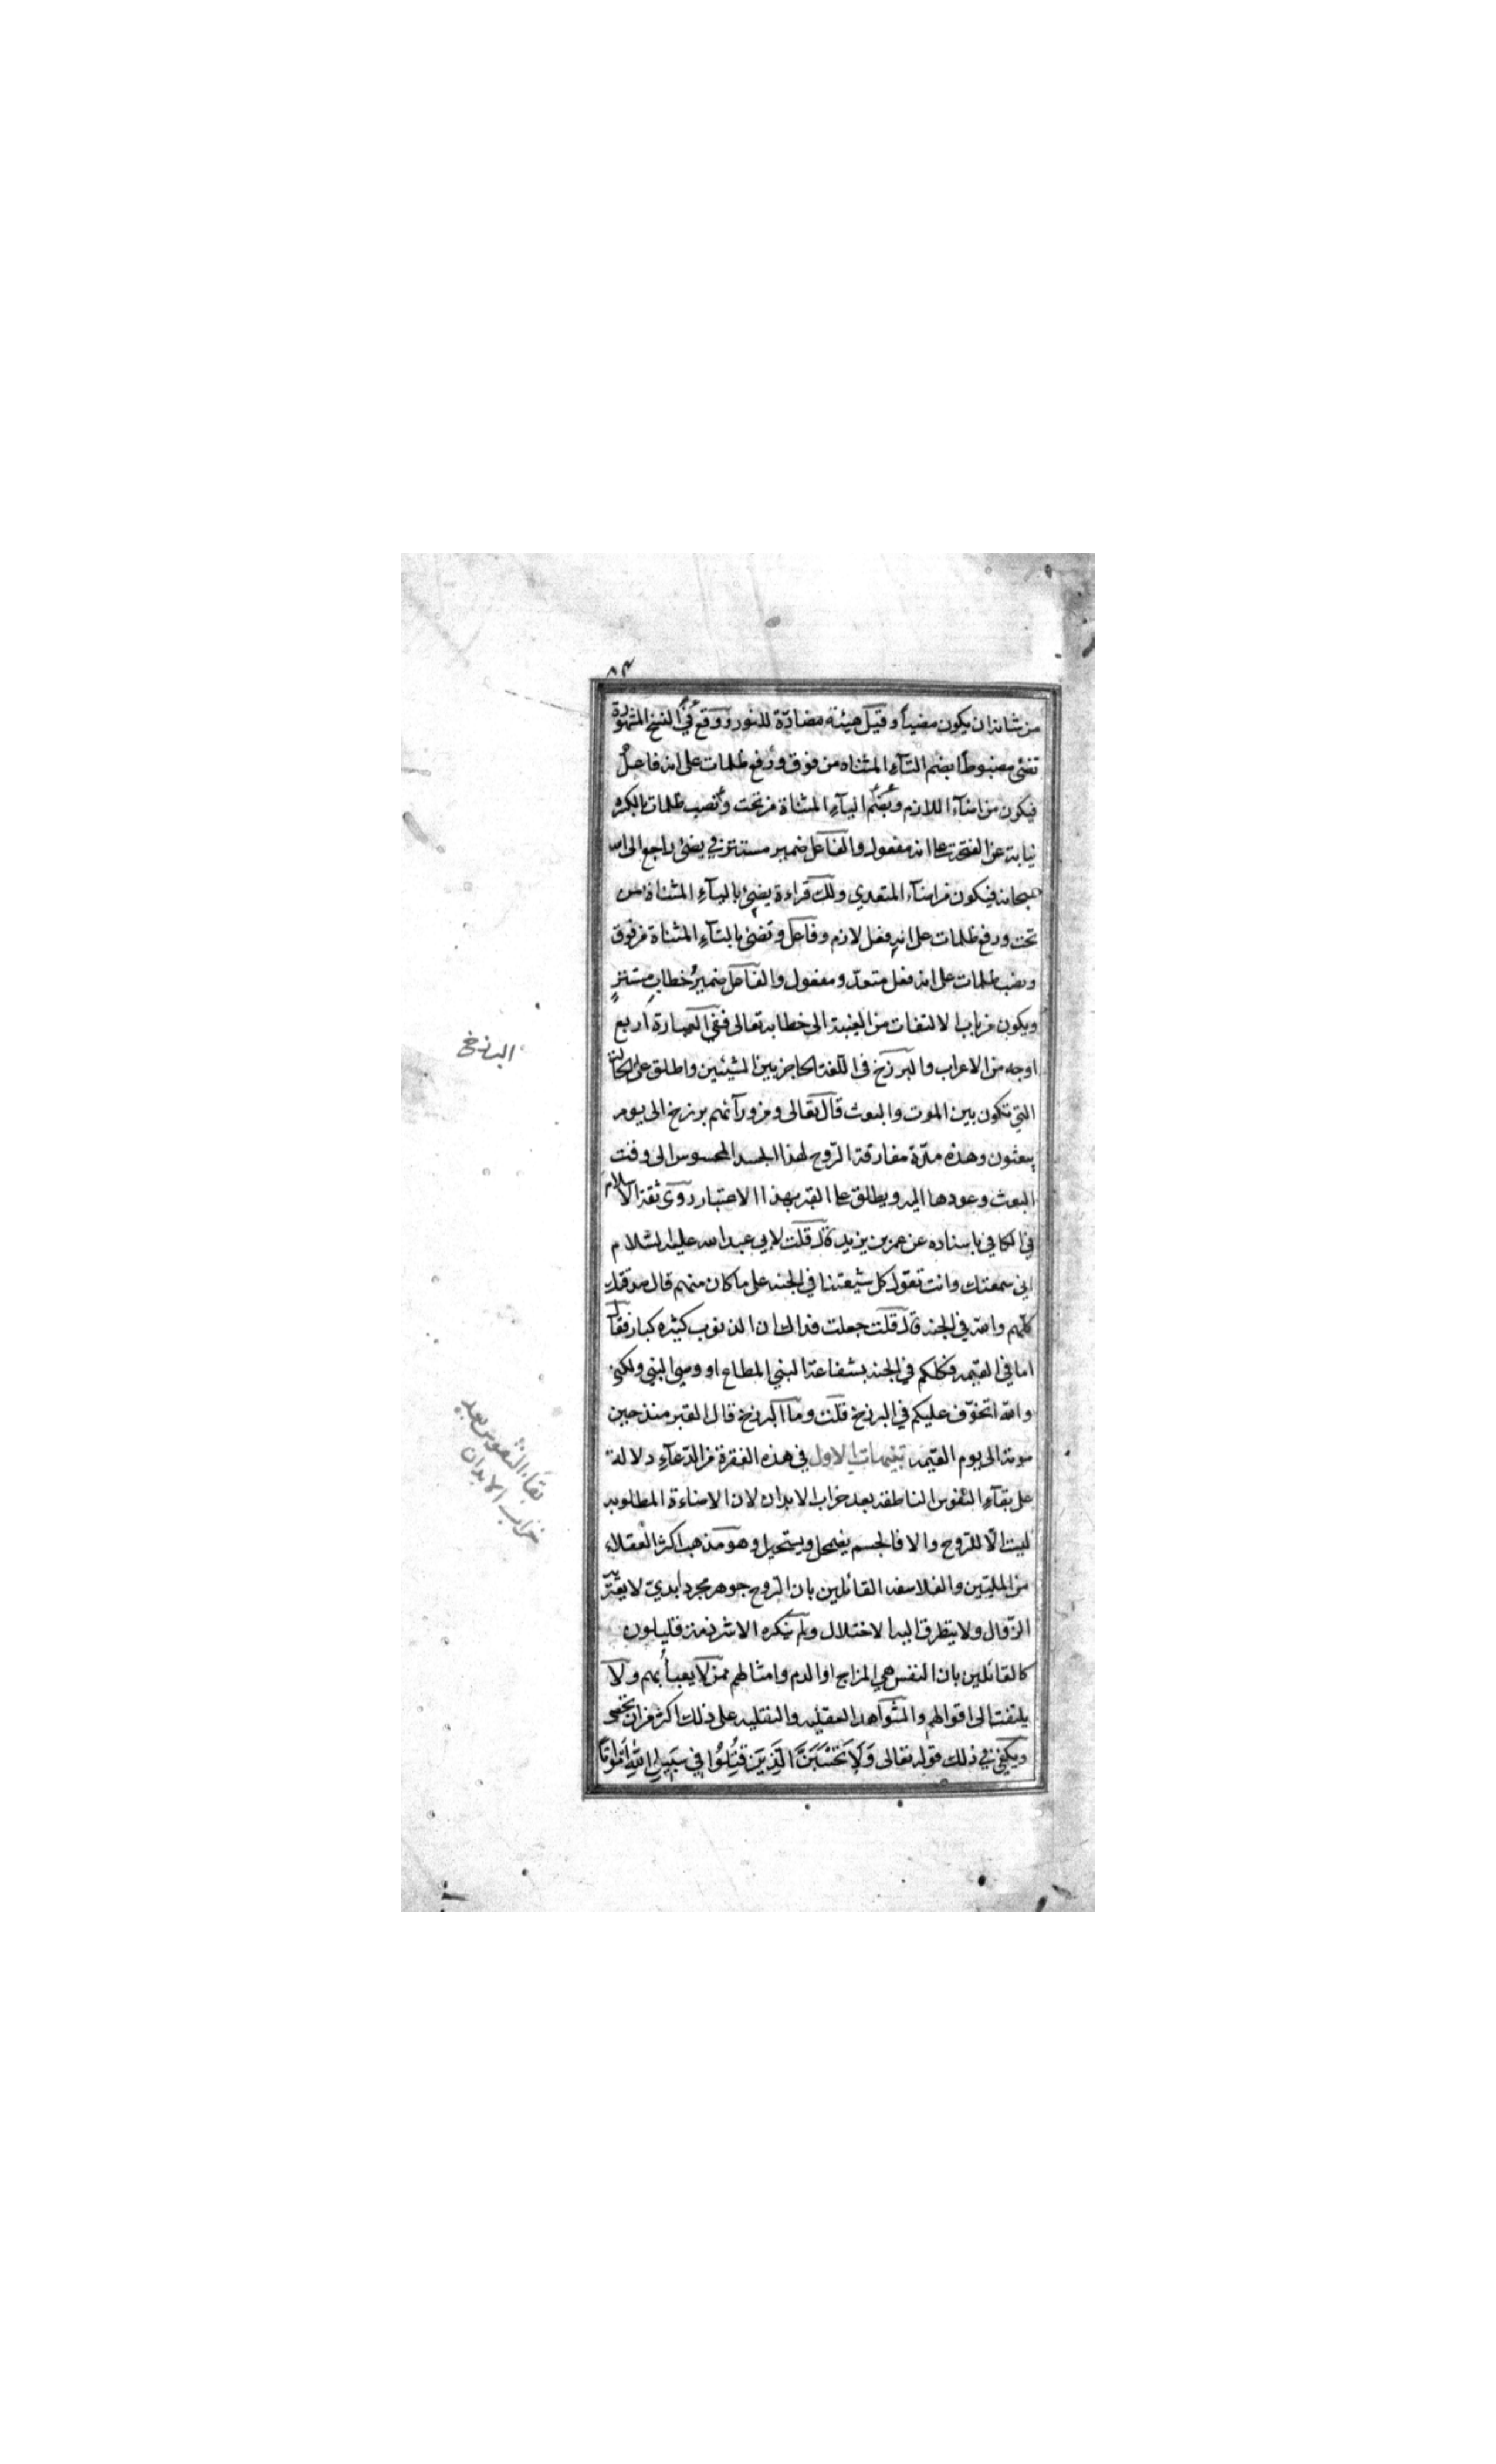 ٨٣
من شانه ان يكون مضيأ وقيل هيئة مضادّة للنور ووقع في النسخ المشهورة
تضئ مضبوطا بضم التآء المثناه من فوق ورفع ظلمات على انه فاعل
فيكون من اضآء اللازم وبضم اليآء المثناة من تحت ونصب ظلمات بالكسره
نيابة عن الفتحة على انه مفعول والفاعل ضمير مستتر في يضئ راجع الى الله
سبحانه فيكون من اضآء المتعدي ولك قراءة يضئ باليآء المثناة من
تحت ورفع ظلمات على انه فعل لازم وفاعل وتضئ بالتآء المثناة من فوق
ونصب ظلمات على انه فعل متعدّ ومفعول والفاعل ضمير خطاب مستتر
ويكون من باب الالتفات من الغيبة الى خطابه تعالى ففي العبارة اربع
اوجه من الاعراب والبرزخ في اللغة الحاجز بين الشيئين واطلق على الحالة
التي تكون بين الموت والبعث قال تعالى ومن ورآئهم برزخ الى يوم
يبعثون وهذه مدّة مفارقة الرّوح لهذا الجسد المحسوس الى وقت
البعث وعودها اليه ويطلق على القبر بهذا الاعتبار روى ثقة الاسلام
في الكافي باسناده عن عمر بن يزيد قال قلت لابي عبد الله عليه السّلام
اني سمعتك وانت تقول كل شيعتنا في الجنه على ما كان منهم قال صدقتك
كلّهم والله في الجنه قال قلت جعلت فداك ان الذنوب كثيره كبار فقال
اما في القيمه فكلكم في الجنه بشفاعة النبي المطاع او وصي النبي ولكني
والله اتخوّف عليكم في البرزخ قلت وما البرزخ قال القبر منذ حين
موته الى يوم القيمه تتميمات الاول في هذه الفقرة من الدّعآء دلالة
على بقآء النفوس الناطقه بعد خراب الابدان لان الاضاءة المطلوبه
ليست الّا للرّوح والا فالجسم يضمحل ويستحيل وهو مذهب اكثر العقلاء
من المليّين والفلاسفه القائلين بان الرّوح جوهر مجرد ابديّ لا يعتريه
الزّوال ولا يتطرق اليه الاختلال ولم ينكره الا شرذمة قليلون
كالقائلين بان النفس هي المزاج او الدم وامثالهم ممن لا يعبأ بهم ولا
يلتفت الى اقوالهم والشواهد العقليه والنقليه على ذلك اكثر من ان تحصى
ويكفي في ذلك قوله تعالى وَلَا تَحْسَبَنَّ الَّذِينَ قُتِلُوا فِي سَبِيلِ اللهِ اَمْوَاتًا
البرزخ
بقاء النفوس بعد
خراب الابدان